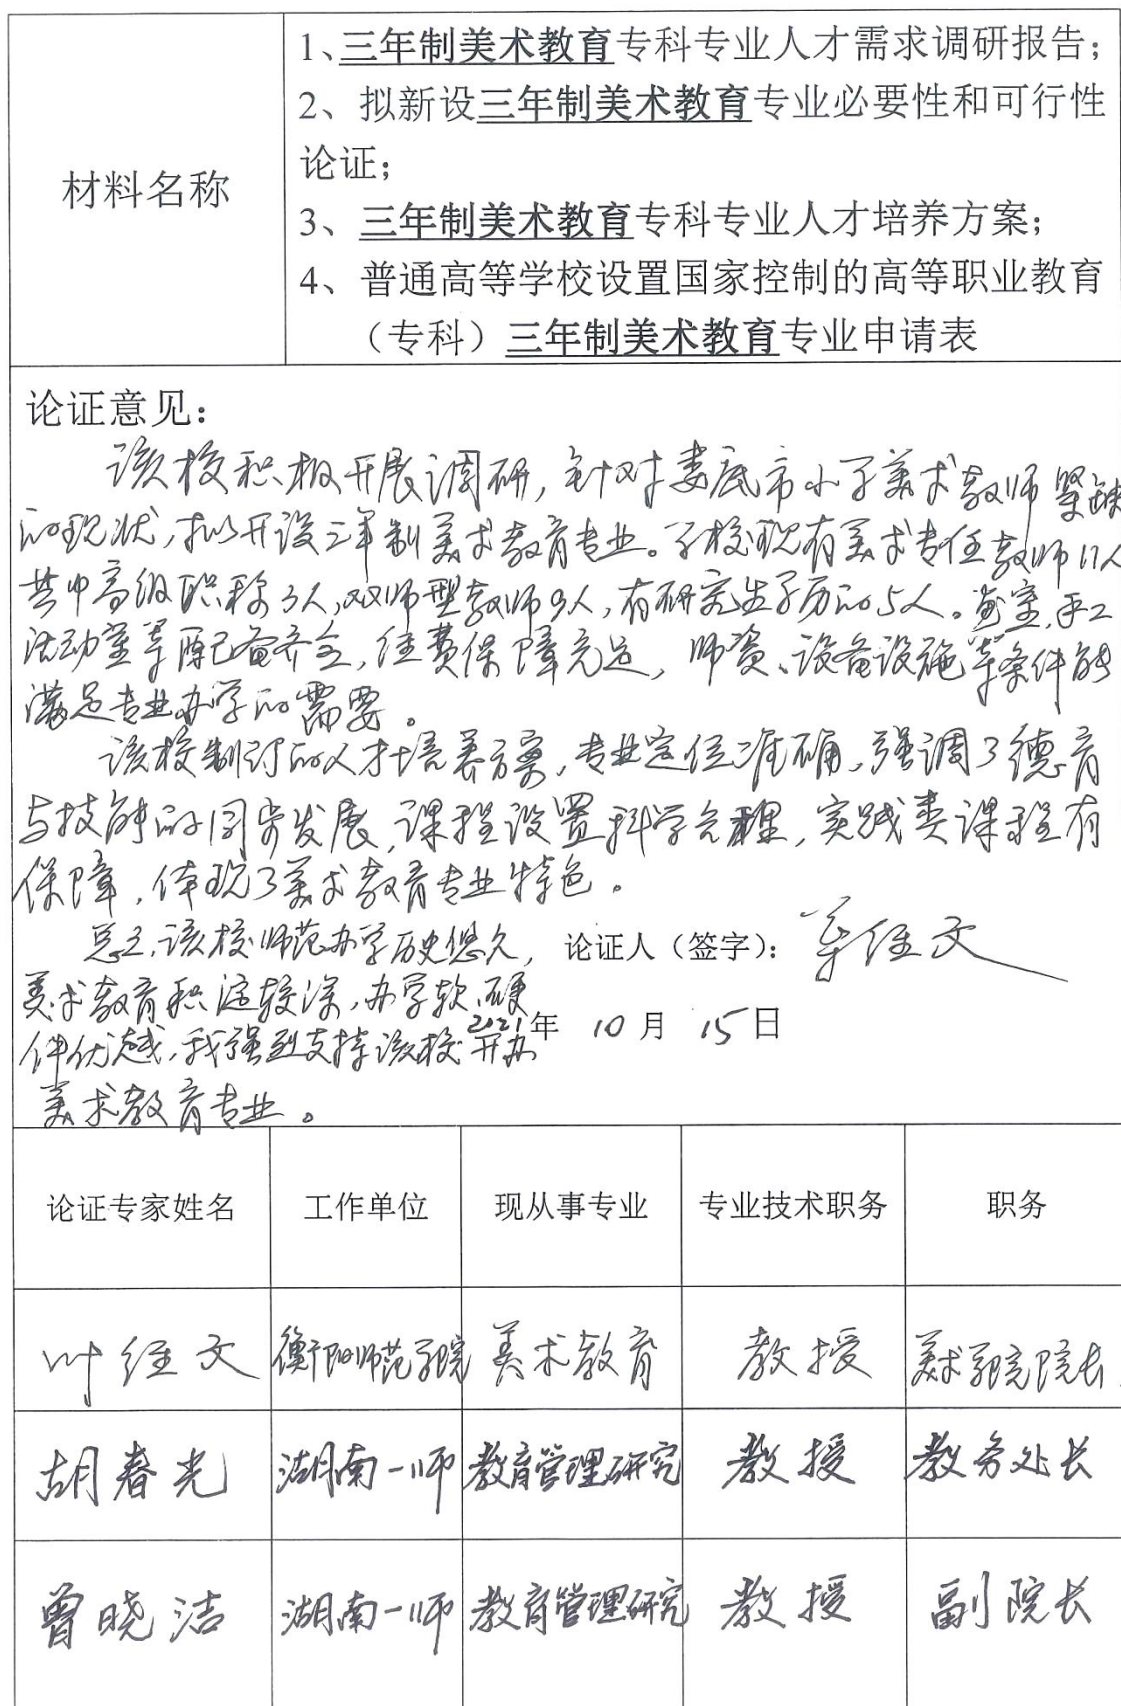 材料名称
1、三年制美术教育专科专业人才需求调研报告；
2、拟新设三年制美术教育专业必要性和可行性
论证；
3、三年制美术教育专科专业人才培养方案；
4、普通高等学校设置国家控制的高等职业教育
（专科）三年制美术教育专业申请表
论证意见：
该校积极开展调研，针对娄底市小学美术教师紧缺
的现状，拟开设三年制美术教育专业。学校现有美术专任教师17人
其中高级职称3人，双师型教师9人，有研究生学历的5人。画室、手工
活动室等配备齐全，经费保障充足，师资、设备设施等条件能
满足专业办学的需要。
该校制订的人才培养方案，专业定位准确，强调了德育
与技能的同步发展，课程设置科学合理，实践类课程有
保障，体现了美术教育专业特色。
总之，该校师范办学历史悠久，
美术教育积淀较深，办学软、硬
件优越，我强烈支持该校开办
美术教育专业。
论证人（签字）：叶经文
2021年 10月 15日
论证专家姓名 工作单位 现从事专业 专业技术职务 职务
叶经文 衡阳师范学院 美术教育 教授 美术学院院长
胡春光 湖南一师 教育管理研究 教授 教务处长
曾晓洁 湖南一师 教育管理研究 教授 副院长